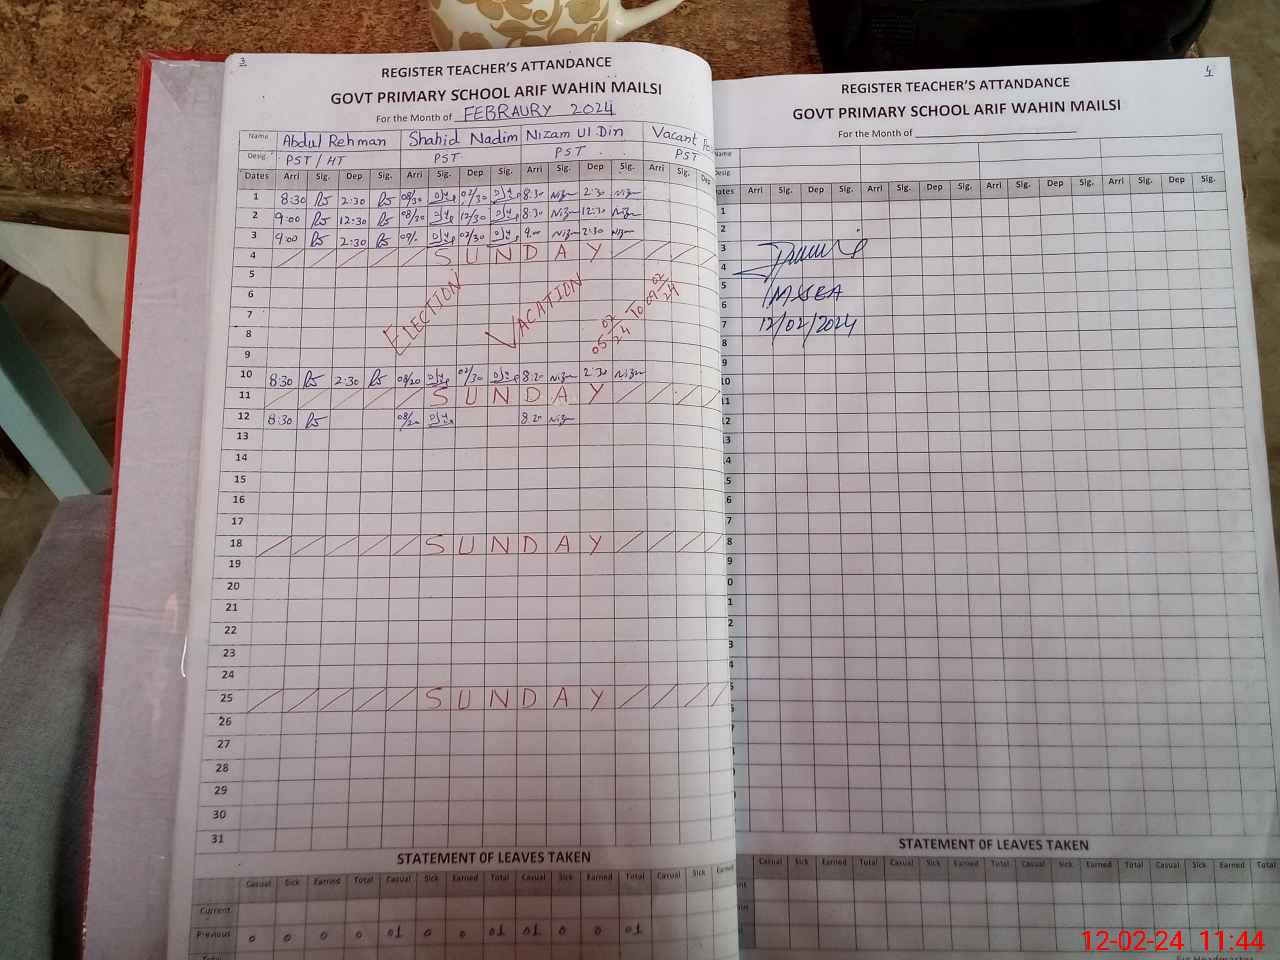 3
REGISTER TEACHER'S ATTANDANCE
GOVT PRIMARY SCHOOL ARIF WAHIN MAILSI
For the Month of FEBRAURY 2024
Name Abdul Rehman Shahid Nadim Nizam Ul Din Vacant
Desig. PST / HT PST PST PST
Dates Arri Sig. Dep Sig. Arri Sig. Dep Sig. Arri Sig. Dep Sig. Arri Sig. Dep
1 8:30 2:30 08/30 02/30 8:30 Nizm 2:30 Nizm
2 9:00 12:30 08/30 12/30 8:30 Nizm 12:30 Nizm
3 9:00 2:30 02/30 9:00 Nizm 2:30 Nizm
4 SUNDAY
5
6
7
8
9
ELECTION VACATION 05-02/24 TO 09-02/24
10 8:30 2:30 08/20 02/30 8:20 Nizm 2:30 Nizm
11 SUNDAY
12 8:30 08/20 8:20 Nizm
13
14
15
16
17
18 SUNDAY
19
20
21
22
23
24
25 SUNDAY
26
27
28
29
30
31
STATEMENT OF LEAVES TAKEN
Casual Sick Earned Total Casual Sick Earned Total Casual Sick Earned Total Casual Sick Earned
Current
Previous 0 0 0 0 01 0 0 01 01 0 0 01
4
REGISTER TEACHER'S ATTANDANCE
GOVT PRIMARY SCHOOL ARIF WAHIN MAILSI
For the Month of
Arri Sig. Dep Sig. Arri Sig. Dep Sig. Arri Sig. Dep Sig. Arri Sig. Dep Sig.
12/02/2024
STATEMENT OF LEAVES TAKEN
Casual Sick Earned Total Casual Sick Earned Total Casual Sick Earned Total Casual Sick Earned Total
12-02-24 11:44